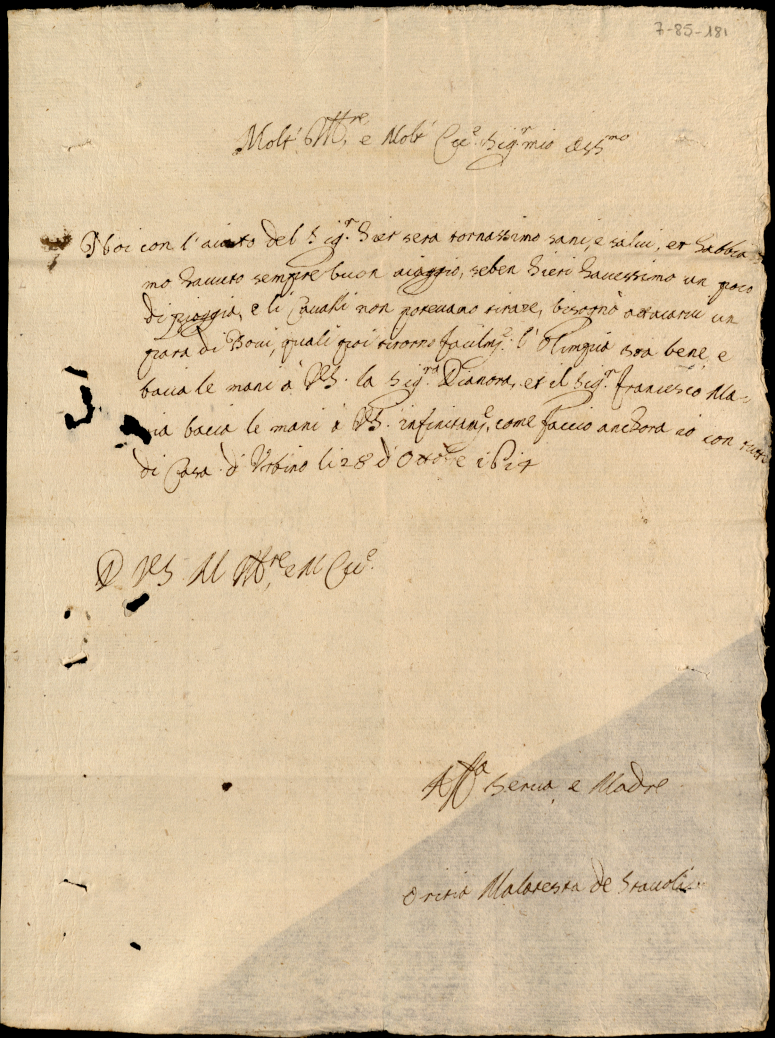 7-85-181
Molt' Ill.re, e Molt' Ecc.e Sig.r mio oss.mo
Noi con l'aiuto del Sig.r hier sera tornassimo sani, e salui, et habbia
mo hauuto sempre buon uiaggio, seben hieri hauessimo un poco
di pioggia, e li Caualli non poteuano tirare, bisognò attacarui un
para di Boui, quali poi tirorno facilm.e. l'Olimpia sta bene, e
bacia le mani à VS. la Sig.ra Dianora, et il Sig.r Francesco Ma-
ria bacia le mani à VS. infinitam.e, come faccio anchora io con tutti
di Casa. d'Vrbino li 28 d'Ottob.e 1614
D VS M Ill.re, e M Ecc.e
Aff.a Serua, e Madre
Malatesta de Stauoli